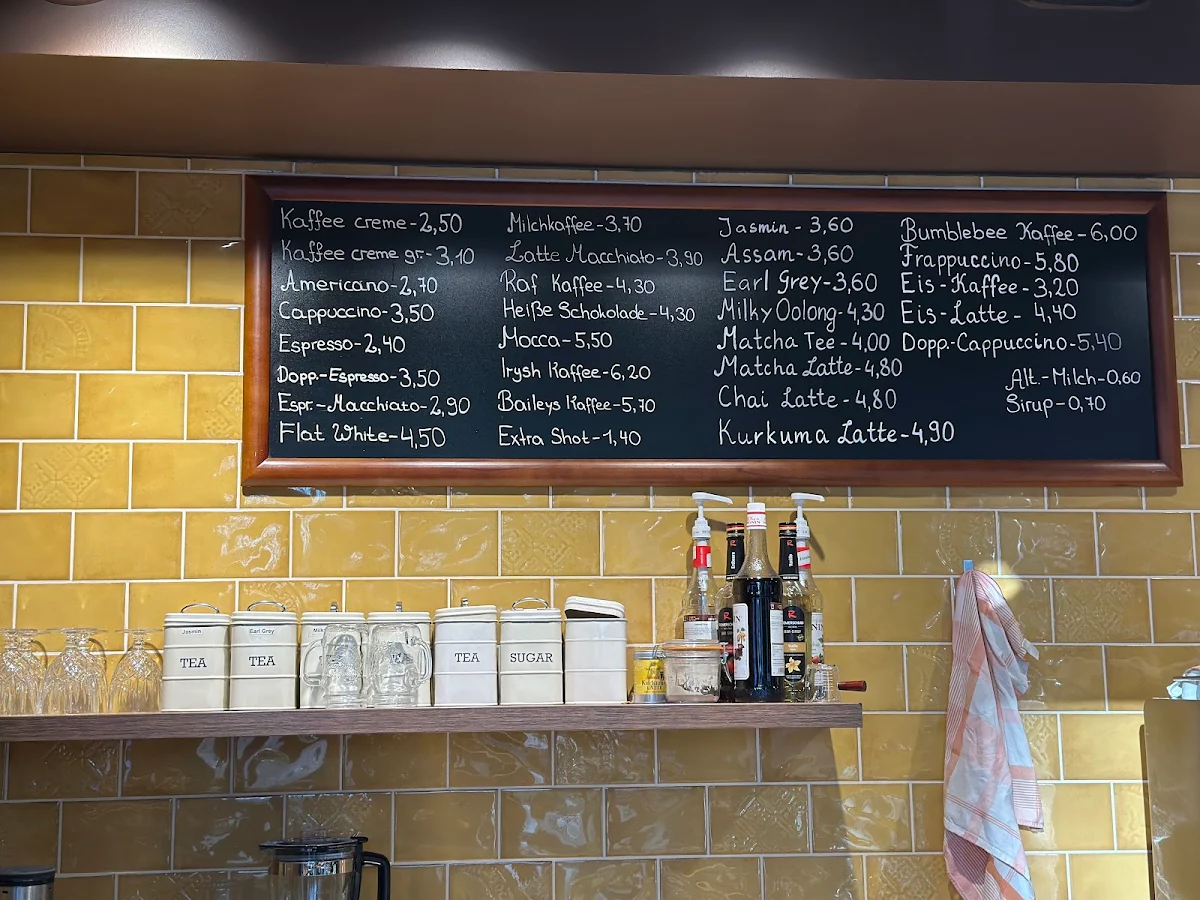 Kaffee creme-2,50
Kaffee creme gr.-3,10
Americano-2,70
Cappuccino-3,50
Espresso-2,40
Dopp.-Espresso-3,50
Espr.-Macchiato-2,90
Flat White-4,50
Milchkaffee-3,70
Latte Macchiato-3,90
Raf Kaffee-4,30
Heiße Schokolade-4,30
Mocca-5,50
Irysh Kaffee-6,20
Baileys Kaffee-5,70
Extra Shot-1,40
Jasmin-3,60
Assam-3,60
Earl Grey-3,60
Milky Oolong-4,30
Matcha Tee-4,00
Matcha Latte-4,80
Chai Latte-4,80
Kurkuma Latte-4,90
Bumblebee Kaffee-6,00
Frappuccino-5,80
Eis-Kaffee-3,20
Eis-Latte-4,40
Dopp.-Cappuccino-5,40
Alt.-Milch-0,60
Sirup-0,70
Jasmin
TEA
Earl Grey
TEA
TEA
SUGAR